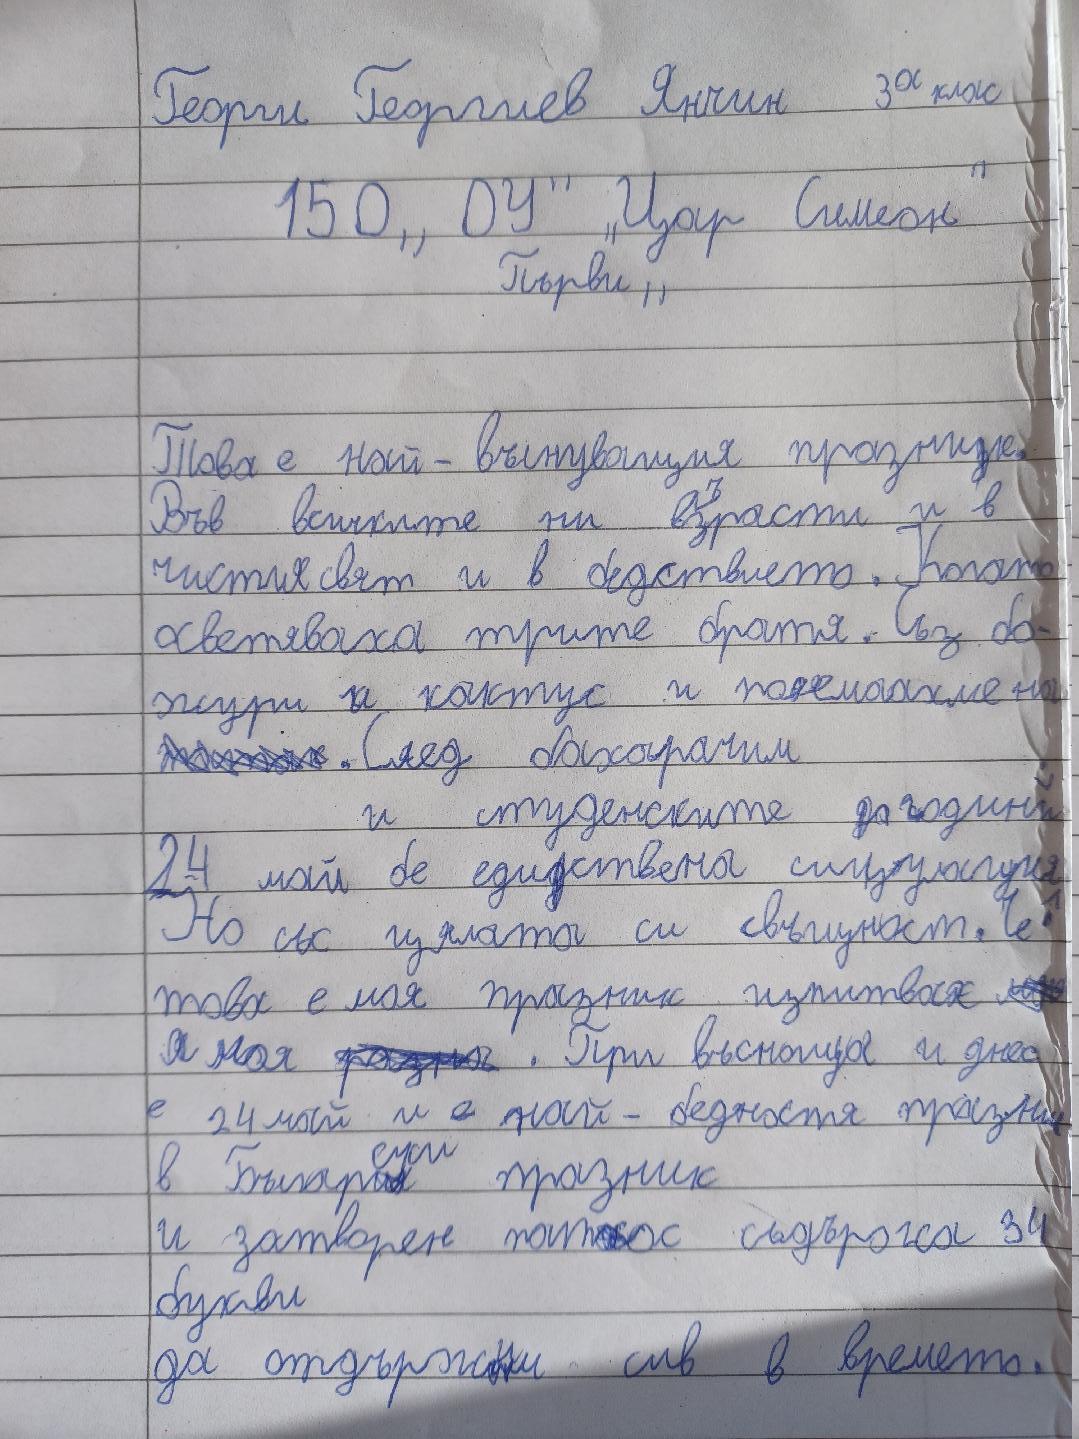 Георги Георгиев Янчин 3а клас
150,, ОУ" „Цар Симеон"
Първи,,
Това е най-вълнуващия празник.
Във всичките ни възрасти и в
чистия свят и в бедствието. Когато
осветяваха трите братя. Със бо-
жури и кактус и поемаахме на
. След
и студенските години
24 май бе единствена
Но със цялата си същност. Че
това е моя празник изпитвах
я моя . При въсноща и днес
е 24 май и е най-бедностя празник
в празник
и затворен патос съдържа 34
букви
да отдържи сив в времето.